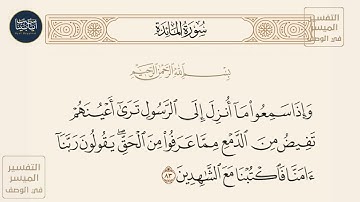 سُورَةُ المَائِدَةِ
التفسير
الميسر
في الوصف
بِسْمِ اللَّهِ الرَّحْمَٰنِ الرَّحِيمِ
وَإِذَا سَمِعُوا۟ مَآ أُنزِلَ إِلَى ٱلرَّسُولِ تَرَىٰٓ أَعْيُنَهُمْ
تَفِيضُ مِنَ ٱلدَّمْعِ مِمَّا عَرَفُوا۟ مِنَ ٱلْحَقِّ ۖ يَقُولُونَ رَبَّنَآ
ءَامَنَّا فَٱكْتُبْنَا مَعَ ٱلشَّٰهِدِينَ ٨٣
التفسير
الميسر
في الوصف